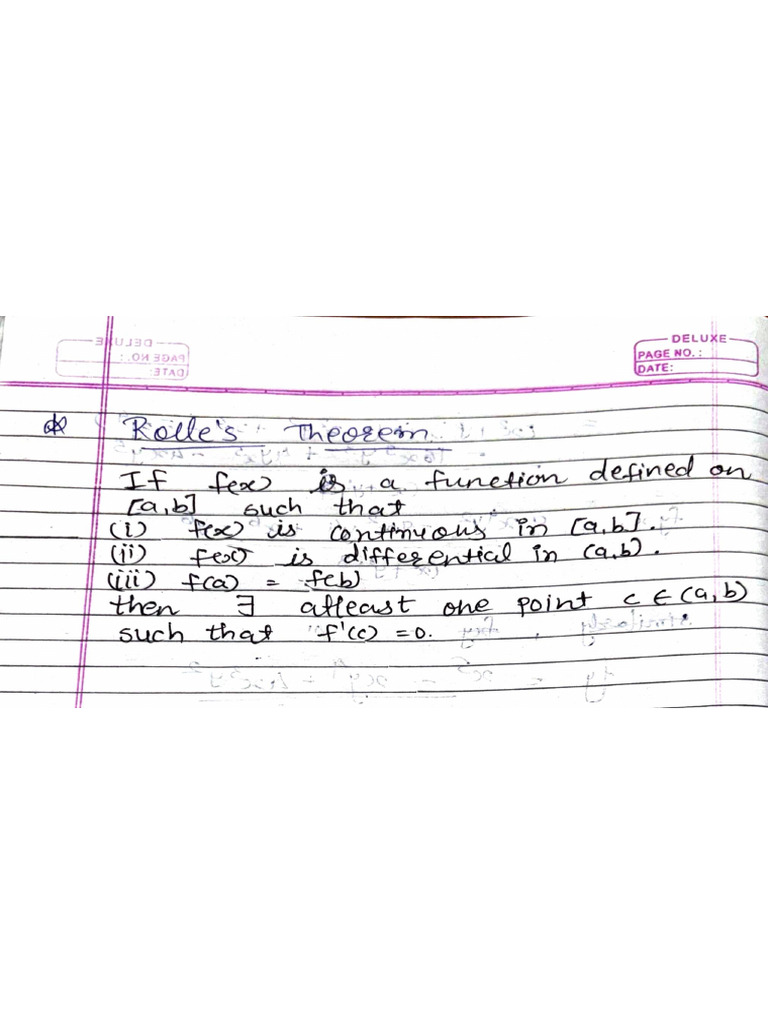 DELUXE
PAGE NO. :
DATE:
Rolle's Theorem
If f(x) is a function defined on
[a,b] such that
(i) f(x) is continuous in [a,b].
(ii) f(x) is differential in (a,b).
(iii) f(a) = f(b)
then ∃ atleast one point c ∈ (a, b)
such that f'(c) = 0.